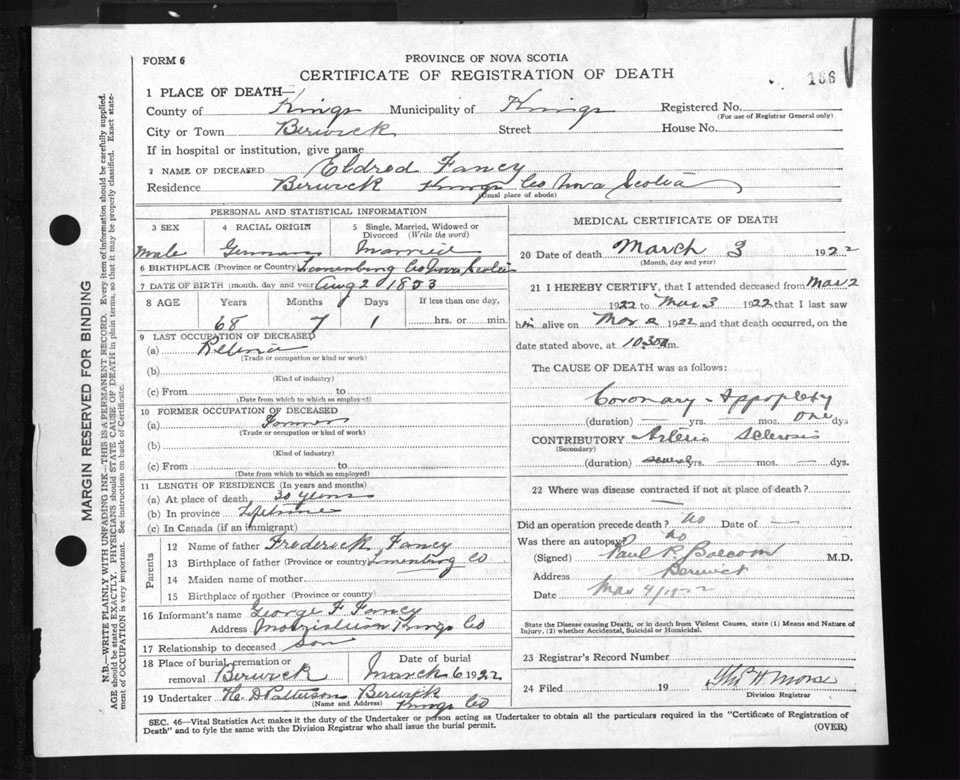 FORM 6
PROVINCE OF NOVA SCOTIA
CERTIFICATE OF REGISTRATION OF DEATH
166
1 PLACE OF DEATH—
County of Kings Municipality of Kings Registered No.
(For use of Registrar General only)
City or Town Berwick Street House No.
If in hospital or institution, give name
2 NAME OF DECEASED Eldred Fancy
Residence Berwick Kings Co Nova Scotia
(Usual place of abode)
MARGIN RESERVED FOR BINDING
N.B.—WRITE PLAINLY WITH UNFADING INK—THIS IS A PERMANENT RECORD. Every item of information should be carefully supplied.
AGE should be stated EXACTLY. PHYSICIANS should STATE CAUSE OF DEATH in plain terms, so that it may be properly classified. Exact state-
ment of OCCUPATION is very important. See instructions on back of Certificate.
PERSONAL AND STATISTICAL INFORMATION
3 SEX 4 RACIAL ORIGIN 5 Single, Married, Widowed or
Divorced (Write the word)
Male German Married
6 BIRTHPLACE (Province or Country) Lunenburg Co Nova Scotia
7 DATE OF BIRTH (month, day and year) Aug 2 1853
8 AGE Years Months Days If less than one day,
68 7 1 hrs. or min.
9 LAST OCCUPATION OF DECEASED
(a) Retired
(Trade or occupation or kind or work)
(b)
(Kind of industry)
(c) From to
(Date from which to which so employed)
10 FORMER OCCUPATION OF DECEASED
(a) Farmer
(Trade or occupation or kind of work)
(b)
(Kind of industry)
(c) From to
(Date from which to which so employed)
11 LENGTH OF RESIDENCE (In years and months)
(a) At place of death 30 years
(b) In province Lifetime
(c) In Canada (if an immigrant)
Parents
12 Name of father Frederick Fancy
13 Birthplace of father (Province or country) Lunenburg Co
14 Maiden name of mother
15 Birthplace of mother (Province or country)
16 Informant's name George F Fancy
Address Morristown Kings Co
17 Relationship to deceased Son
18 Place of burial, cremation or Date of burial
removal Berwick March 6 1922
19 Undertaker H. D Patterson Berwick
(Name and Address) Kings Co
MEDICAL CERTIFICATE OF DEATH
20 Date of death March 3 1922
(Month, day and year)
21 I HEREBY CERTIFY, that I attended deceased from Mar 2
1922 to Mar 3 1922 that I last saw
him alive on Mar 2 1922 and that death occurred, on
the date stated above, at 10.30 m.
The CAUSE OF DEATH was as follows:
Coronary - Appoplexy
(duration) — yrs. — mos. one dys
CONTRIBUTORY Arterio Sclerosis
(Secondary)
(duration) several yrs. — mos. — dys.
22 Where was disease contracted if not at place of death? —
Did an operation precede death? no Date of —
Was there an autopsy? no
(Signed) Paul R. Balcom M.D.
Address Berwick
Date Mar 4/1922
State the Disease causing Death, or in death from Violent Causes, state (1) Means and Nature of
Injury, (2) whether Accidental, Suicidal or Homicidal.
23 Registrar's Record Number
24 Filed 19 Morse
Division Registrar
SEC. 46—Vital Statistics Act makes it the duty of the Undertaker or person acting as Undertaker to obtain all the particulars required in the "Certificate of Registration of
Death" and to fyle the same with the Division Registrar who shall issue the burial permit.
(OVER)